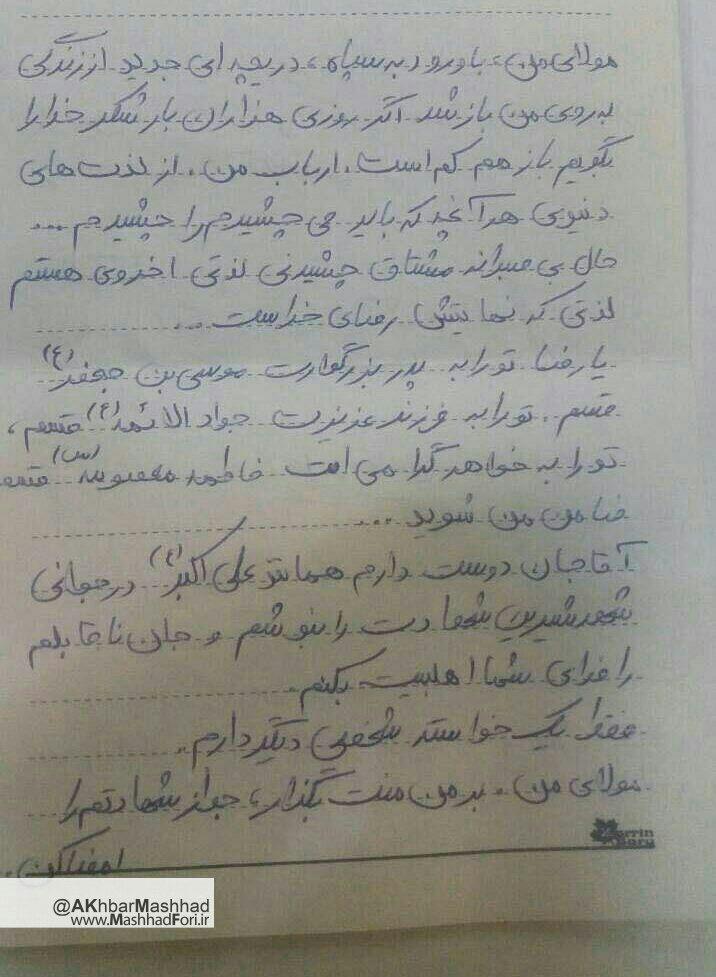 مولای من، با ورود به سپاه، دریچه ای جدید از زندگی
به روی من باز شد اگر روزی هزاران بار شکر خدا را
بگویم باز هم کم است. ارباب من، از لذت های
دنیوی هر آنچه که باید می چشیدم را چشیدم ...
حال بی صبرانه مشتاق چشیدن لذتی اخروی هستم
لذتی که نهایتش رضای خداست ...
یا رضا تو را به پدر بزرگوارت موسی بن جعفر (ع)
قسم. تو را به فرزند عزیزت جواد الائمه (ع) قسم،
تو را به خواهر گرامی ات فاطمه معصومه (س) قسم
ضامن من شوید ...
آقا جان دوست دارم همانند علی اکبر (ع) در جوانی
شهد شیرین شهادت را بنوشم و جان ناقابلم
را فدای شما اهلبیت بکنم.
فقط یک خواسته شخصی دیگر دارم..
مولای من، بر من منت بگذار، جواز شهادتم را
امضا کن.
@AKhbarMashhad
www.MashhadFori.ir